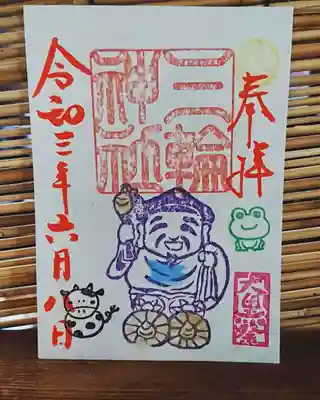 奉拝
三輪
神社
大黒祭
令和三年六月八日